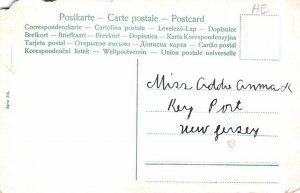 Postkarte – Carte postale – Postcard
Correspondenzkarte – Cartolina postale – Levelező-Lap – Dopisnice
Brefkort – Briefkaart – Brevkort – Dopisnica – Karta Korespondzyjna
Tarjeta postal – Открытое письмо – Дописна карта – Cartão postal
Korespondenční lístek – Weltpostverein – Union postale universelle
AE
Miss Addie
Key Port
New Jersey
Serie